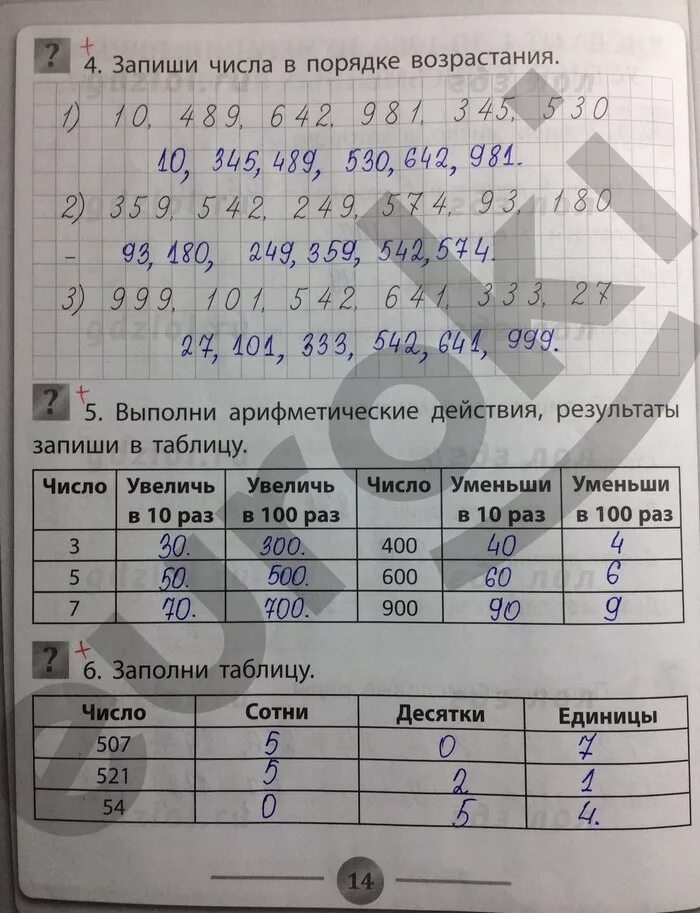 ? + 4. Запиши числа в порядке возрастания.
1) 10, 489, 642, 981, 345, 530
10, 345, 489, 530, 642, 981.
2) 359, 542, 249, 574, 93, 180
- 93, 180, 249, 359, 542, 574.
3) 999, 101, 542, 641, 333, 27
27, 101, 333, 542, 641, 999.
? + 5. Выполни арифметические действия, результаты
запиши в таблицу.
Число Увеличь в 10 раз Увеличь в 100 раз Число Уменьши в 10 раз Уменьши в 100 раз
3 30. 300. 400 40 4
5 50. 500. 600 60 6
7 70. 700. 900 90 9
? + 6. Заполни таблицу.
Число Сотни Десятки Единицы
507 5 0 7
521 5 2 1
54 0 5 4.
14
euroki